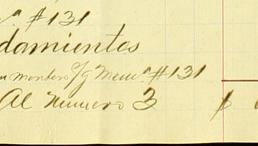 nº #131
damientos
montero o/g Mem.ª #131
Al Numero 3 $